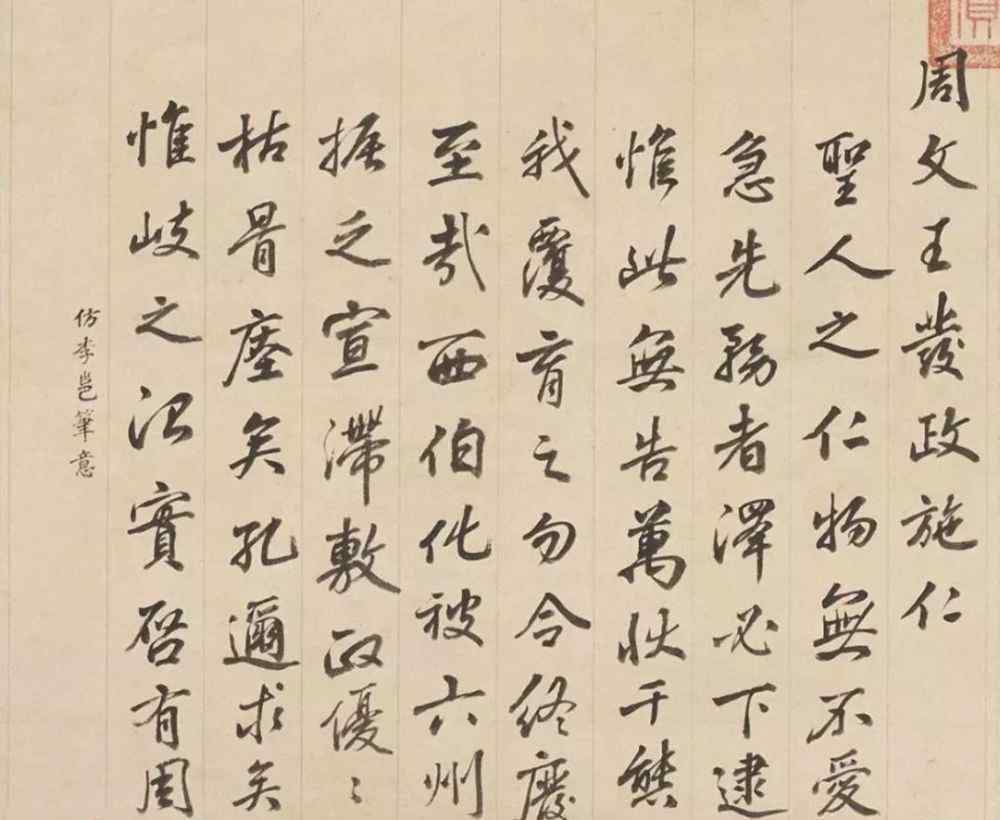 周文王發政施仁
聖人之仁物無不愛
急先務者澤必下逮
惟此無告萬狀千態
我覆育之勿令終廢
至哉西伯化被六州
振乏宣滯敷政優〻
枯骨矣孔邇求矣
惟岐之治實啓有周
仿李邕筆意